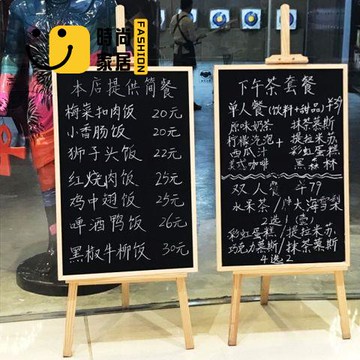 時尚
家居
FASHION
本店提供简餐
梅菜扣肉饭 20元
小香肠饭 20元
狮子头饭 22元
红烧肉饭 25元
鸡中翅饭 25元
啤酒鸭饭 26元
黑椒牛柳饭 30元
下午茶套餐
单人餐(饮料+甜品)
原味奶茶 抹茶慕斯
柠檬泡泡 + 提拉米苏
西瓜汁 彩虹蛋糕
美式咖啡 黑森林
双人餐 ¥79
水果茶/大海宫梨
2选1
彩虹蛋糕/提拉米苏
巧克力慕斯/抹茶慕斯
4选2